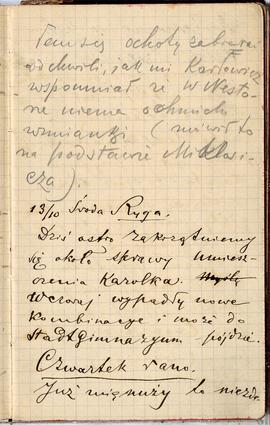 Tem się ochoty zabrać
od chwili, jak mi Karłowicz
wspomniał że w Nesto-
rze niema o nich
wzmianki (mówił to
na podstawie Miklosi-
cza).
13/10 Środa Ryga.
Dziś ostro zakrzątniemy
się około sprawy umiesz-
czenia Karolka.
Wczoraj wypadły nowe
kombinacye i może do
Stadtgimnazyum pójdzie.
Czwartek rano.
Już mignęły to